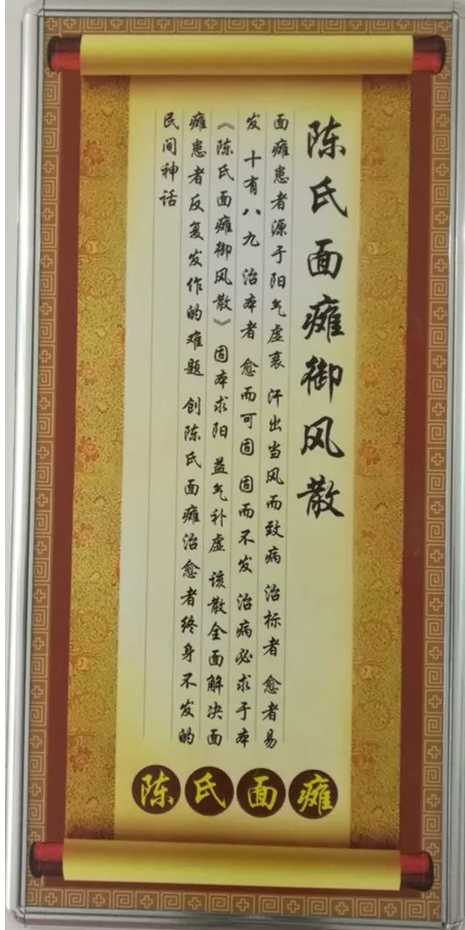 陈氏面瘫御风散
面瘫患者源于阳气虚衰 汗出当风而致病 治标者 愈者易
发 十有八九 治本者 愈而可固 固而不发 治病必求于本
《陈氏面瘫御风散》固本求阳 益气补虚 该散全面解决面
瘫患者反复发作的难题 创陈氏面瘫治愈者终身不发的
民间神话
陈氏面瘫